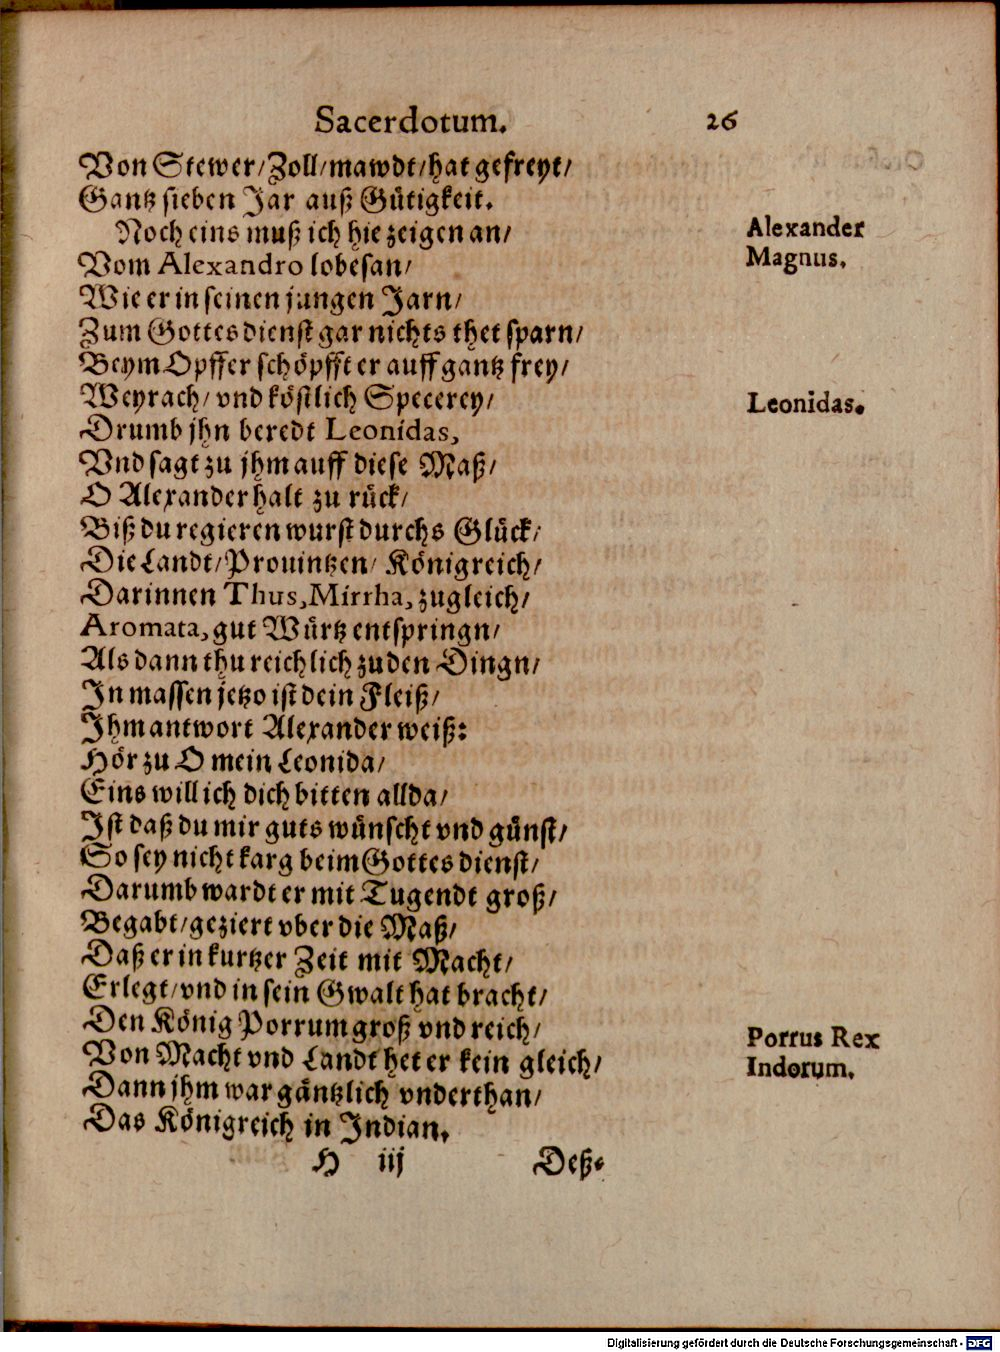 Sacerdotum. 26
Von Stewer/Zoll/mawdt/hat gefreyt/
Gantz sieben Jar auß Gütigkeit.
Noch eins muß ich hie zeigen an/
Alexander
Vom Alexandro lobesan/
Magnus.
Wie er in seinen jungen Jarn/
Zum Gottesdienst gar nichts thet sparn/
Beym Opffer schöpfft er auff gantz frey/
Weyrach/ vnd köstlich Specerey/
Leonidas.
Drumb jhn beredt Leonidas,
Vnd sagt zu jhm auff diese Maß/
O Alexander halt zu rück/
Biß du regieren wurst durchs Glück/
Die Landt/Prouintzen/ Königreich/
Darinnen Thus, Mirrha, zugleich/
Aromata, gut Würtz entspringn/
Als dann thu reichlich zu den Dingn/
In massen jetzo ist dein Fleiß/
Ihm antwort Alexander weiß:
Hör zu O mein Leonida/
Eins will ich dich bitten allda/
Ist daß du mir guts wünscht vnd günst/
So sey nicht karg beim Gottesdienst/
Darumb wardt er mit Tugendt groß/
Begabt/geziert vber die Maß/
Daß er in kurtzer Zeit mit Macht/
Erlegt/vnd in sein Gwalt hat bracht/
Den König Porrum groß vnd reich/
Porrus Rex
Von Macht vnd Landt het er kein gleich/
Indorum.
Dann jhm war gäntzlich vnderthan/
Das Königreich in Indian.
H iij Deß-
Digitalisierung gefördert durch die Deutsche Forschungsgemeinschaft - DFG